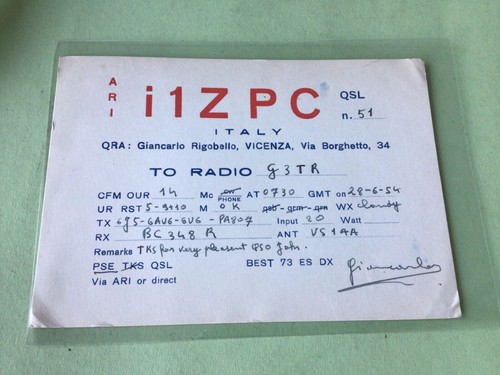 ARI
i1ZPC
QSL
n. 51
ITALY
QRA: Giancarlo Rigobello, VICENZA, Via Borghetto, 34
TO RADIO G3TR
CFM OUR 14 Mc cw PHONE AT 0730 GMT ON 28-6-54
UR RST 5-9 M OK qsb - qrm - qrn WX cloudy
TX 6J5-6AU6-6V6 - PA807 Input 20 Watt
RX BC 348 R ANT VS1AA
Remarks TKS for very pleasant QSO John.
PSE TKS QSL BEST 73 ES DX Giancarlo
Via ARI or direct